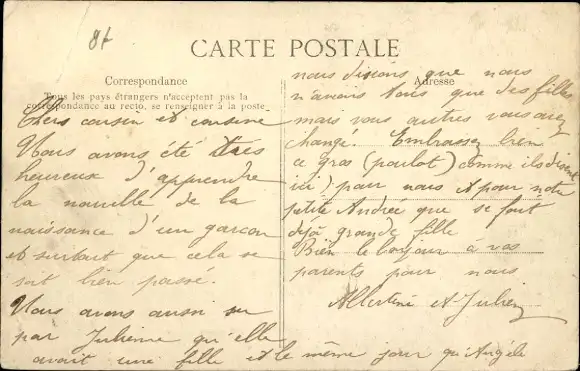 8f
CARTE POSTALE
Correspondance
Tous les pays étrangers n'acceptent pas la
correspondance au recto, se renseigner à la poste
Chers cousin et cousine
Nous avons été très
heureux d'apprendre
la nouvelle de la
naissance d'un garçon
et surtout que cela se
soit bien passé.
Nous avons aussi su
par Julienne qu'elle
avait une fille et le même jour qu'Angèle
Adresse
nous disions que nous
n'avions tous que des filles
mais vous autres vous avez
changé. Embrassez bien
ce gros (poulot) comme ils disent
ici) pour nous A pour notre
petite Andrée que se fait
déjà grande fille
Bien le bonjour à vos
parents pour nous
Albertine et Julien